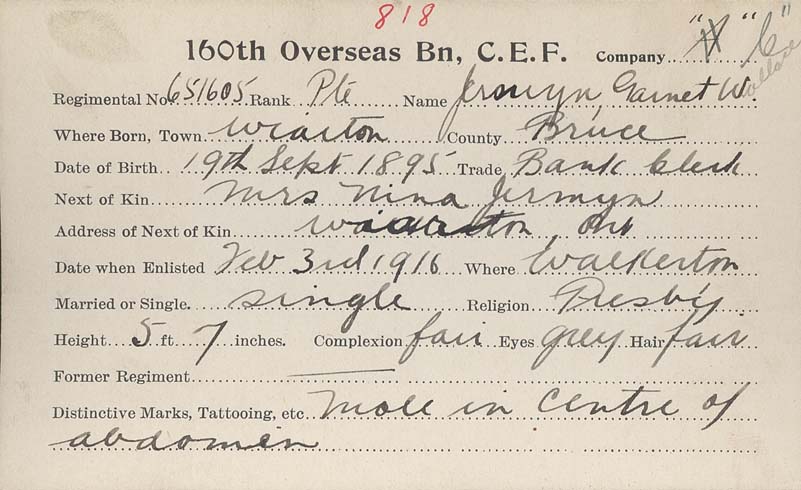 818
160th Overseas Bn, C.E.F. Company "A" "C"
Wallace
Regimental No. 651605 Rank Pte Name Jermyn, Garnet W.
Where Born, Town Wiarton County Bruce
Date of Birth 19th Sept 1895 Trade Bank Clerk
Next of Kin Mrs Nina Jermyn
Address of Next of Kin Wiarton, Ont
Date when Enlisted Feb 3rd 1916 Where Walkerton
Married or Single single Religion Presby.
Height 5 ft 7 inches. Complexion fair Eyes grey Hair fair
Former Regiment
Distinctive Marks, Tattooing, etc. Mole in centre of
abdomen